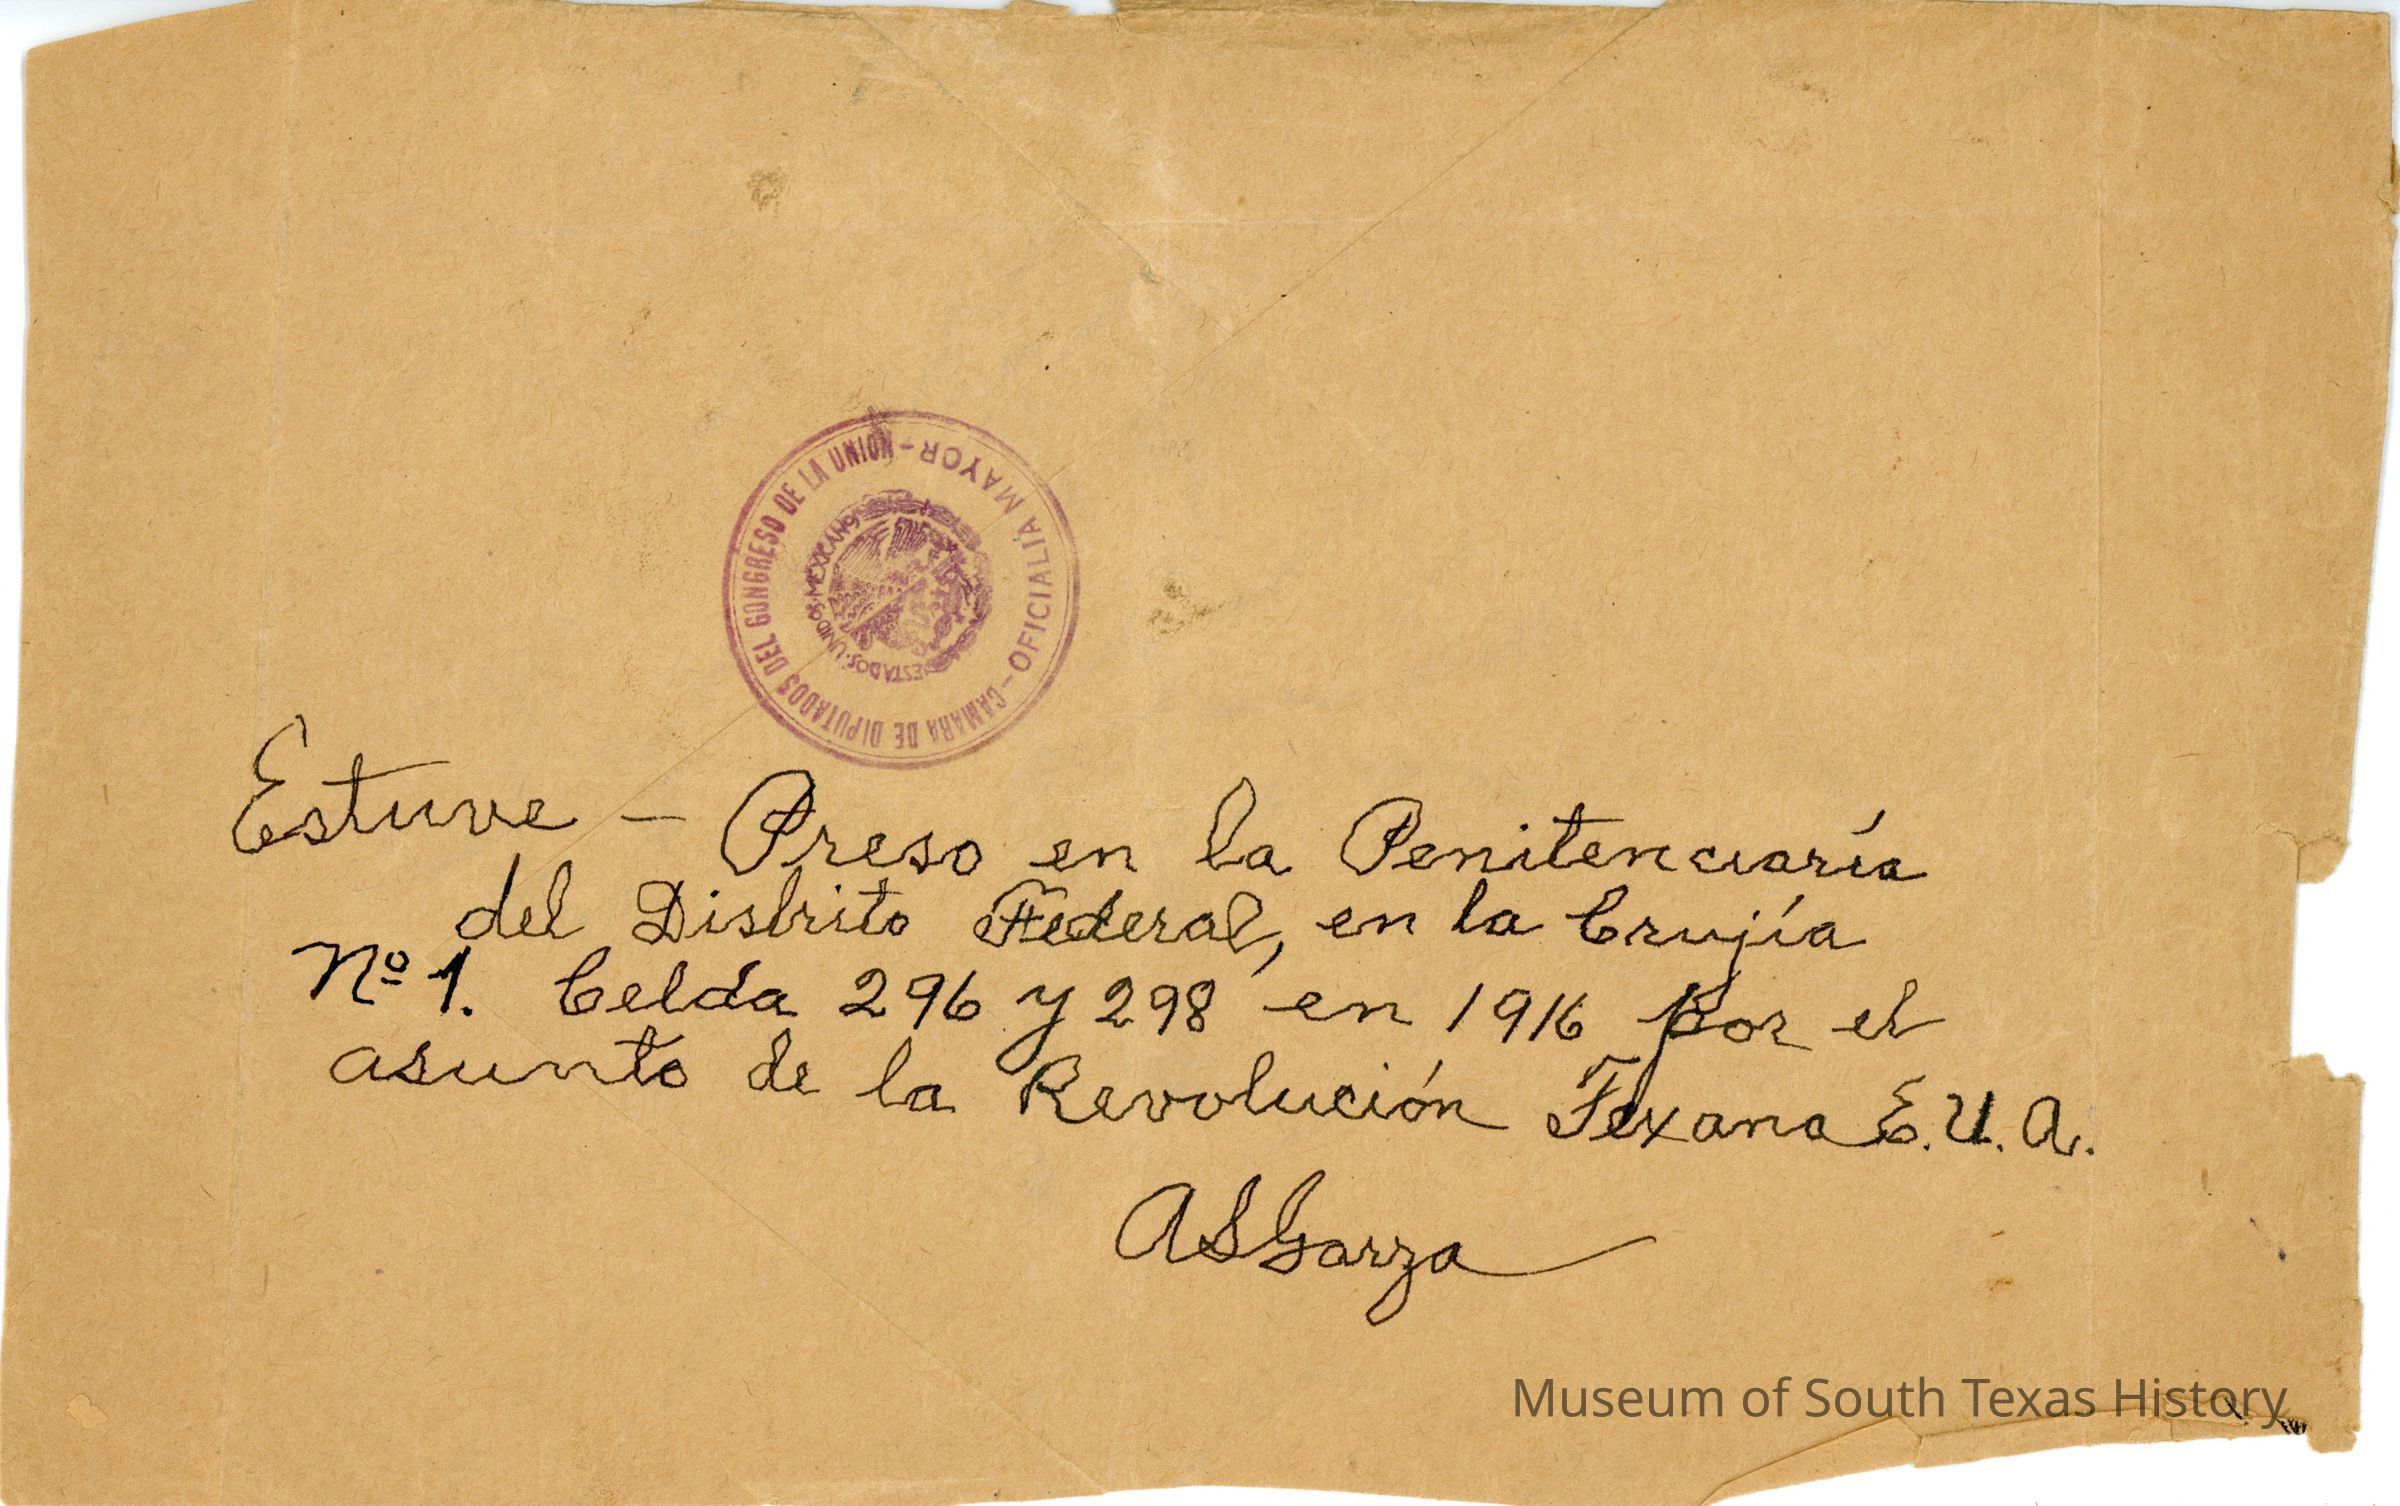 CAMARA DE DIPUTADOS DEL CONGRESO DE LA UNION - OFICIALIA MAYOR -
ESTADOS·UNIDOS·MEXICANOS
Estuve - Preso en la Penitenciaría
del Distrito Federal, en la Crujía
Nº 1. Celda 296 y 298 en 1916 por el
asunto de la Revolución Texana E.U.A.
ASGarza
Museum of South Texas History